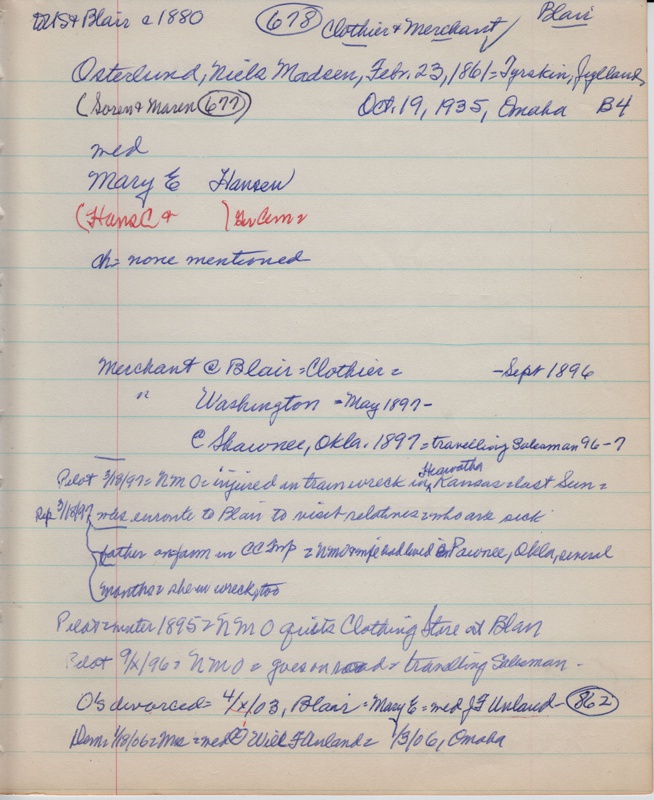 US & Blair c 1880 678 Clothier & Merchant Blair
Osterlund, Niels Madsen, Febr. 23, 1861 = Tyrskin, Jylland,
(Soren & Maren 677) Oct. 19, 1935, Omaha B4
med
Mary E Hansen
(Hans C & )
ch = none mentioned
Merchant @ Blair = Clothier = - Sept 1896
" Washington - May 1897 -
C Shawnee, Okla. 1897 = travelling salesman 96-7
Pilot 3/18/97 = NMO = injured in train wreck in Hiawatha Kansas = last Sun =
Rep 3/18/97 was enroute to Blair to visit relatives = who are sick
father on farm in CC Twp = NMO & wife had lived @ Pawnee, Okla, several
months = she in wreck, too
Pilot = winter 1895 = NMO quits Clothing Store at Blair
Pilot 9/X/96 = NMO = goes on road = travelling salesman -
O's divorced = 4/X/03, Blair = Mary E = med J F Unland - 862
Dem = 1/8/06 = Mrs = med Will F Unland = 1/3/06, Omaha